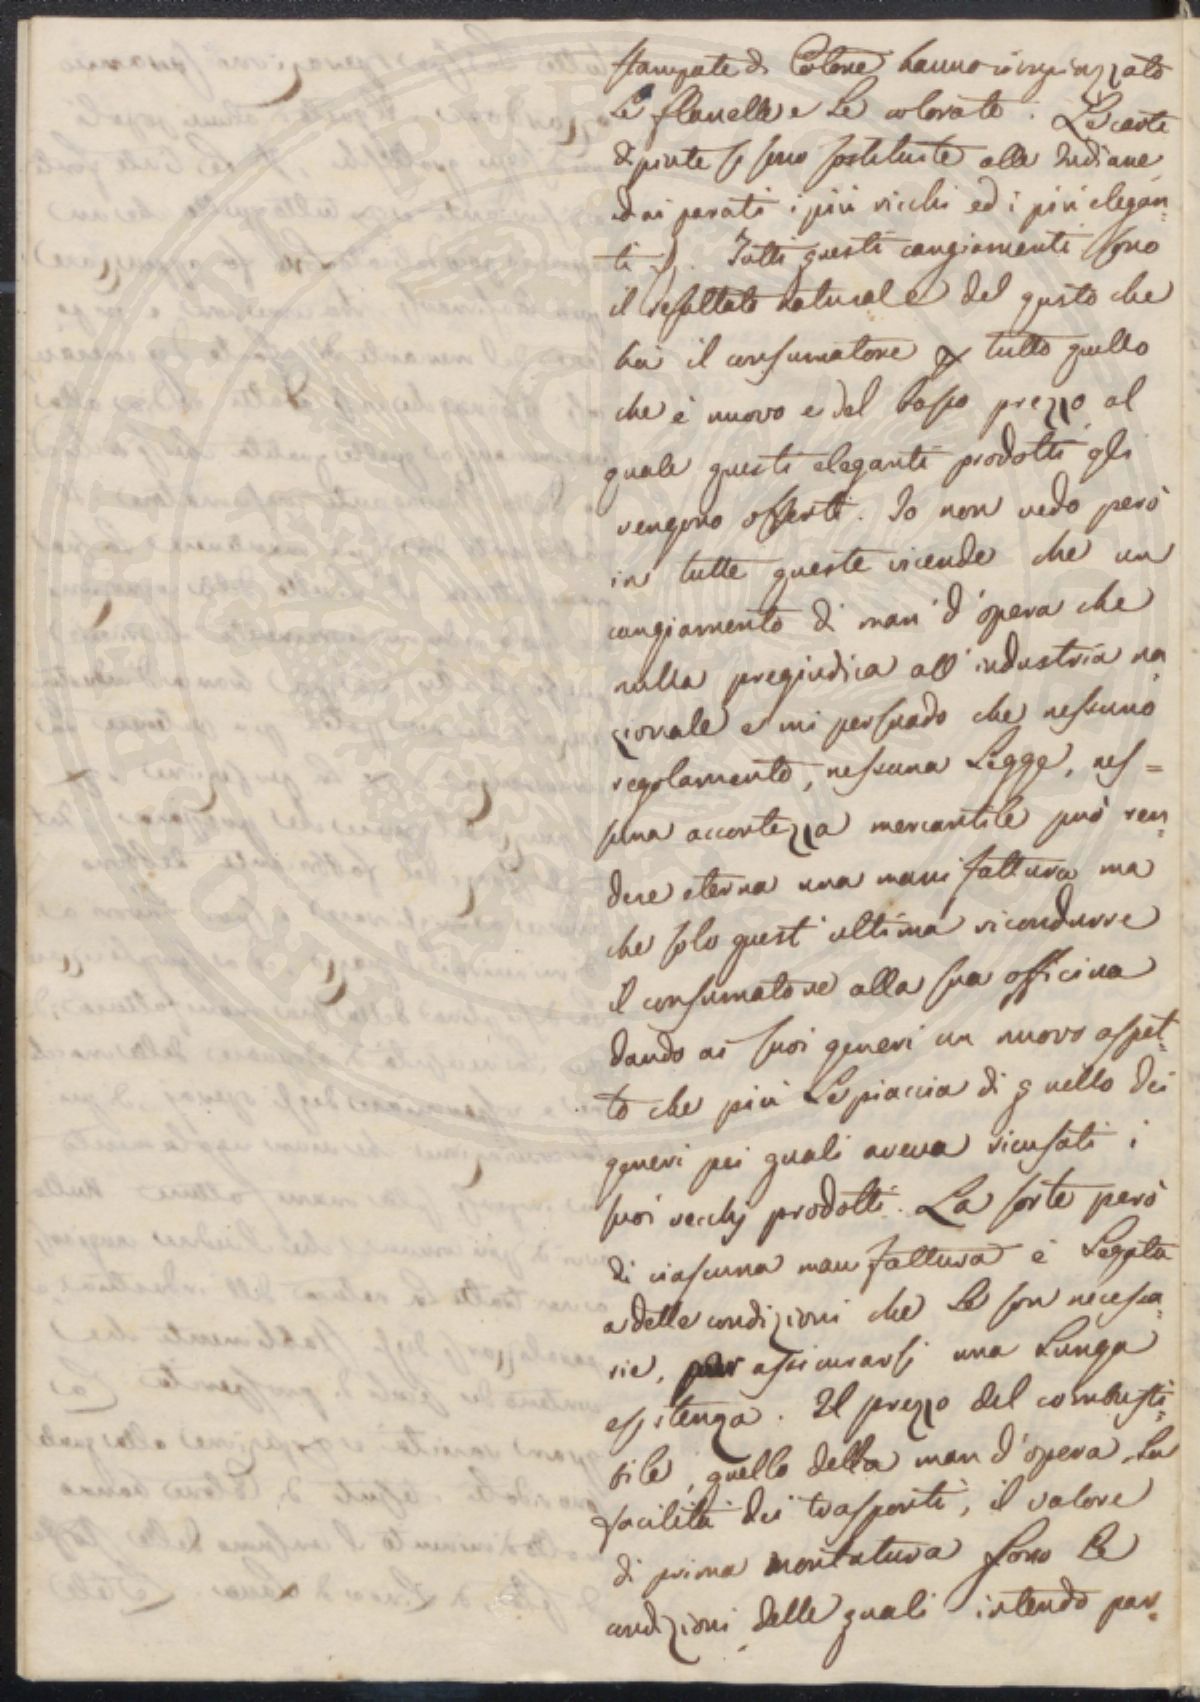 stampate di Cotone hanno rimpiazzato
Le flanelle e Le colorate. Le carte
dipinte si sono sostituite alle Indiane
ed ai parati i più ricchi ed i più elegan-
ti. Tutti questi cangiamenti sono
il resultato naturale del gusto che
ha il consumatore p tutto quello
che è nuovo e del basso prezzo al
quale questi eleganti prodotti gli
vengono offerti. Io non vedo però
in tutte queste vicende che un
cangiamento di man d'opera che
nulla pregiudica all'industria na
zionale e mi persuado che nessuno
regolamento, nessuna Legge, nes=
suna accortezza mercantile può ren
dere eterna una manifattura ma
che solo quest'ultima ricondurre
il consumatore alla sua officina
dando ai suoi generi un nuovo aspet-
to che più Le piaccia di quello dei
generi pei quali aveva ricusati i
suoi vecchj prodotti. La sorte però
di ciascuna manifattura è Legata
a delle condizioni che Le son necessa
rie, per assicurarsi una Lunga
esistenza. Il prezzo del combusti-
bile, quello della man d'opera, La
facilità dei trasporti, il valore
di prima montatura sono Le
condizioni delle quali intendo par-